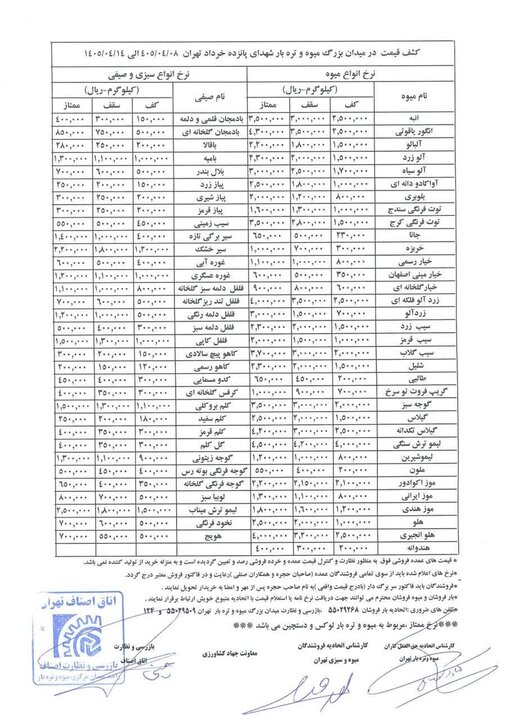 کشف قیمت در میدان بزرگ میوه و تره بار شهدای پانزده خرداد تهران ۱۴۰۵/۰۴/۰۸ الی ۱۴۰۵/۰۴/۱۴
نرخ انواع میوه نرخ انواع سبزی و صیفی
نام میوه (کیلوگرم-ریال) نام صیفی (کیلوگرم-ریال)
کف سقف ممتاز کف سقف ممتاز
انبه ۲,۵۰۰,۰۰۰ ۳,۰۰۰,۰۰۰ ۳,۵۰۰,۰۰۰ بادمجان قلمی و دلمه ۱۵۰,۰۰۰ ۳۰۰,۰۰۰ ۴۰۰,۰۰۰
انگور یاقوتی ۲,۵۰۰,۰۰۰ ۳,۵۰۰,۰۰۰ ۴,۳۰۰,۰۰۰ بادمجان گلخانه ای ۵۰۰,۰۰۰ ۷۵۰,۰۰۰ ۸۵۰,۰۰۰
آلبالو ۱,۵۰۰,۰۰۰ ۱,۸۰۰,۰۰۰ ۲,۲۰۰,۰۰۰ باقالا ۲۰۰,۰۰۰ ۲۵۰,۰۰۰ ۲۸۰,۰۰۰
آلو زرد ۱,۵۰۰,۰۰۰ ۲,۰۰۰,۰۰۰ ۲,۲۰۰,۰۰۰ بامیه ۱,۰۰۰,۰۰۰ ۱,۱۰۰,۰۰۰ ۱,۳۰۰,۰۰۰
آلو سیاه ۱,۷۰۰,۰۰۰ ۲,۵۰۰,۰۰۰ ۳,۰۰۰,۰۰۰ بلال بندر ۵۰۰,۰۰۰ ۶۰۰,۰۰۰ ۷۰۰,۰۰۰
آواکادو دانه ای ۱,۰۰۰,۰۰۰ ۱,۸۰۰,۰۰۰ ۲,۵۰۰,۰۰۰ پیاز زرد ۱۵۰,۰۰۰ ۲۰۰,۰۰۰ ۲۵۰,۰۰۰
بلوبری ۸۰۰,۰۰۰ ۱,۲۰۰,۰۰۰ ۲,۰۰۰,۰۰۰ پیاز شیری ۲۰۰,۰۰۰ ۲۵۰,۰۰۰ ۳۰۰,۰۰۰
توت فرنگی سنندج ۱,۰۰۰,۰۰۰ ۱,۳۰۰,۰۰۰ ۱,۶۰۰,۰۰۰ پیاز قرمز ۲۰۰,۰۰۰ ۲۵۰,۰۰۰ ۳۰۰,۰۰۰
توت فرنگی کرج ۱,۵۰۰,۰۰۰ ۲,۸۰۰,۰۰۰ ۳,۵۰۰,۰۰۰ سیب زمینی ۴۵۰,۰۰۰ ۵۰۰,۰۰۰ ۵۵۰,۰۰۰
جانا ۲۳۰,۰۰۰ ۵۰۰,۰۰۰ ۶۵۰,۰۰۰ سیر برگی تازه ۴۰۰,۰۰۰ ۱,۰۰۰,۰۰۰ ۱,۴۰۰,۰۰۰
خربزه ۳۰۰,۰۰۰ ۷۰۰,۰۰۰ ۱,۰۰۰,۰۰۰ سیر خشک ۱,۲۰۰,۰۰۰ ۱,۸۰۰,۰۰۰ ۲,۲۰۰,۰۰۰
خیار رسمی ۴۰۰,۰۰۰ ۸۰۰,۰۰۰ ۱,۰۰۰,۰۰۰ غوره آبی ۴۰۰,۰۰۰ ۵۰۰,۰۰۰ ۶۰۰,۰۰۰
خیار مینی اصفهان ۳۵۰,۰۰۰ ۵۰۰,۰۰۰ ۶۰۰,۰۰۰ غوره عسگری ۱,۰۰۰,۰۰۰ ۱,۱۰۰,۰۰۰ ۱,۲۰۰,۰۰۰
خیار گلخانه ای ۶۰۰,۰۰۰ ۸۰۰,۰۰۰ ۹۰۰,۰۰۰ فلفل دلمه سبز گلخانه ۸۰۰,۰۰۰ ۱,۰۰۰,۰۰۰ ۱,۱۰۰,۰۰۰
زرد آلو فلکه ای ۲,۵۰۰,۰۰۰ ۳,۵۰۰,۰۰۰ ۴,۰۰۰,۰۰۰ فلفل تند ریز گلخانه ۵۰۰,۰۰۰ ۶۰۰,۰۰۰ ۷۰۰,۰۰۰
زردآلو ۷۰۰,۰۰۰ ۲,۰۰۰,۰۰۰ ۳,۰۰۰,۰۰۰ فلفل دلمه رنگی ۵۰۰,۰۰۰ ۱,۰۰۰,۰۰۰ ۱,۲۰۰,۰۰۰
سیب زرد ۱,۵۰۰,۰۰۰ ۲,۰۰۰,۰۰۰ ۲,۳۰۰,۰۰۰ فلفل دلمه سبز ۳۰۰,۰۰۰ ۴۰۰,۰۰۰ ۵۰۰,۰۰۰
سیب قرمز ۱,۵۰۰,۰۰۰ ۲,۰۰۰,۰۰۰ ۲,۰۰۰,۰۰۰ فلفل کاپی ۱,۰۰۰,۰۰۰ ۱,۳۰۰,۰۰۰ ۱,۵۰۰,۰۰۰
سیب گلاب ۲,۰۰۰,۰۰۰ ۳,۳۰۰,۰۰۰ ۳,۷۰۰,۰۰۰ کاهو پیچ سالادی ۱۵۰,۰۰۰ ۲۰۰,۰۰۰ ۳۰۰,۰۰۰
شلیل ۱,۰۰۰,۰۰۰ ۲,۰۰۰,۰۰۰ ۲,۳۰۰,۰۰۰ کاهو رسمی ۱۲۰,۰۰۰ ۱۵۰,۰۰۰ ۲۰۰,۰۰۰
طالبی ۲۰۰,۰۰۰ ۴۵۰,۰۰۰ ۶۵۰,۰۰۰ کدو مسمایی ۳۰۰,۰۰۰ ۴۰۰,۰۰۰ ۴۵۰,۰۰۰
گریپ فروت تو سرخ ۷۰۰,۰۰۰ ۹۰۰,۰۰۰ ۱,۰۰۰,۰۰۰ کرفس گلخانه ای ۳۰۰,۰۰۰ ۳۵۰,۰۰۰ ۴۰۰,۰۰۰
گوجه سبز ۲,۰۰۰,۰۰۰ ۳,۰۰۰,۰۰۰ ۳,۵۰۰,۰۰۰ کلم بروکلی ۱,۱۰۰,۰۰۰ ۱,۳۰۰,۰۰۰ ۱,۵۰۰,۰۰۰
گیلاس ۱,۵۰۰,۰۰۰ ۲,۰۰۰,۰۰۰ ۲,۵۰۰,۰۰۰ کلم سفید ۱۸۰,۰۰۰ ۲۰۰,۰۰۰ ۲۵۰,۰۰۰
گیلاس تکدانه ۲,۵۰۰,۰۰۰ ۳,۲۰۰,۰۰۰ ۴,۲۰۰,۰۰۰ کلم قرمز ۳۰۰,۰۰۰ ۳۵۰,۰۰۰ ۴۰۰,۰۰۰
لیمو ترش سنگی ۲,۰۰۰,۰۰۰ ۴,۲۰۰,۰۰۰ ۴,۵۰۰,۰۰۰ گل کلم ۳۰۰,۰۰۰ ۳۵۰,۰۰۰ ۴۰۰,۰۰۰
لیموشیرین ۸۰۰,۰۰۰ ۱,۰۰۰,۰۰۰ ۱,۲۰۰,۰۰۰ گوجه زیتونی ۹۰۰,۰۰۰ ۱,۱۰۰,۰۰۰ ۱,۳۰۰,۰۰۰
ملون ۲۰۰,۰۰۰ ۴۰۰,۰۰۰ ۵۵۰,۰۰۰ گوجه فرنگی بوته رس ۴۰۰,۰۰۰ ۴۵۰,۰۰۰ ۵۰۰,۰۰۰
موز اکوادور ۲,۱۰۰,۰۰۰ ۲,۱۵۰,۰۰۰ ۲,۲۰۰,۰۰۰ گوجه فرنگی گلخانه ۳۵۰,۰۰۰ ۴۰۰,۰۰۰ ۶۵۰,۰۰۰
موز ایرانی ۹۰۰,۰۰۰ ۱,۱۰۰,۰۰۰ ۱,۳۰۰,۰۰۰ لوبیا سبز ۵۰۰,۰۰۰ ۷۰۰,۰۰۰ ۸۰۰,۰۰۰
موز هندی ۱,۲۰۰,۰۰۰ ۱,۶۰۰,۰۰۰ ۱,۸۰۰,۰۰۰ لیمو ترش میناب ۱,۵۰۰,۰۰۰ ۱,۸۰۰,۰۰۰ ۲,۵۰۰,۰۰۰
هلو ۱,۰۰۰,۰۰۰ ۲,۰۰۰,۰۰۰ ۲,۵۰۰,۰۰۰ نخود فرنگی ۵۰۰,۰۰۰ ۶۰۰,۰۰۰ ۷۰۰,۰۰۰
هلو انجیری ۲,۰۰۰,۰۰۰ ۳,۲۰۰,۰۰۰ ۴,۰۰۰,۰۰۰ هویج ۵۰۰,۰۰۰ ۵۵۰,۰۰۰ ۷۰۰,۰۰۰
هندوانه ۲۰۰,۰۰۰ ۳۰۰,۰۰۰ ۴۰۰,۰۰۰
* قیمت های عمده فروشی فوق به منظور نظارت و کنترل قیمت عمده و خرده فروشی رصد و تعیین گردیده است و به منزله خرید از تولید کننده نمی باشد.
*نرخ های اعلام شده باید از سوی تمامی فروشندگان عمده (صاحبان حجره و همکاران صنفی) رعایت و در فاکتور فروش معتبر درج گردد.
*فروشندگان باید فاکتور سر برگ دار (بادرج قیمت واقعی) به نام صاحب حجره پس از مهر و امضا به خریدار تحویل نمایند.
*بارفروشان و میوه فروشان محترم می توانند جهت دریافت نرخ نامه یا استعلام قیمت با اتحادیه متبوع خویش ارتباط برقرار نمایند.
*تلفن های ضروری: اتحادیه بار فروشان ۵۵۰۲۹۲۶۸ - بازرسی و نظارت میدان بزرگ میوه و تره بار تهران ۵۵۰۲۹۵۰۹ و ۱۲۴
***نرخ ممتاز ،مربوط به میوه و تره بار لوکس و دستچین می باشد ***
کارشناس اتحادیه حق العمل کاران میوه و تره بار تهران
کارشناس اتحادیه فروشندگان میوه و سبزی تهران
معاونت جهاد کشاورزی
بازرسی و نظارت اتاق اصناف
اتاق اصناف تهران
بازرسی و نظارت اصناف